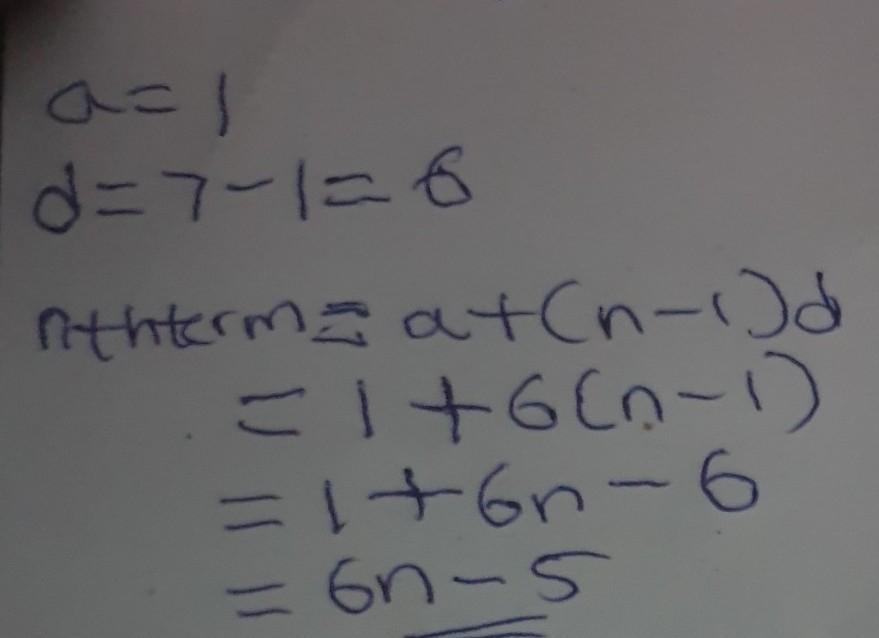 a = 1
d = 7 - 1 = 6
nthterm = a + (n - 1)d
= 1 + 6(n - 1)
= 1 + 6n - 6
= 6n - 5